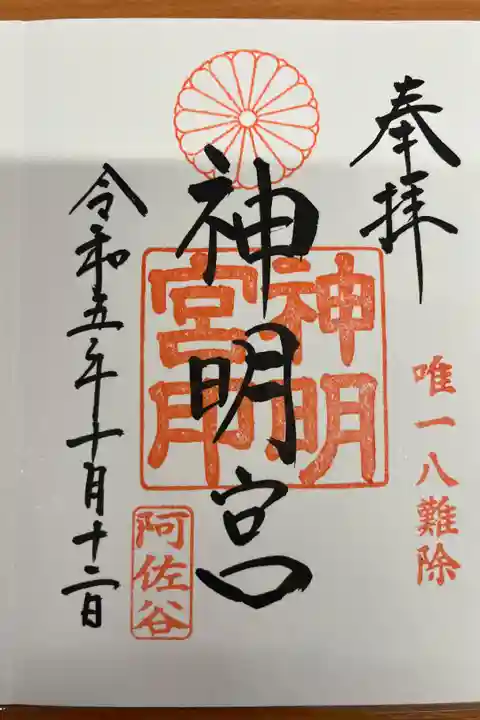 奉拝
唯一八難除
神明宮
神明
宮印
阿佐谷
令和五年十月十二日